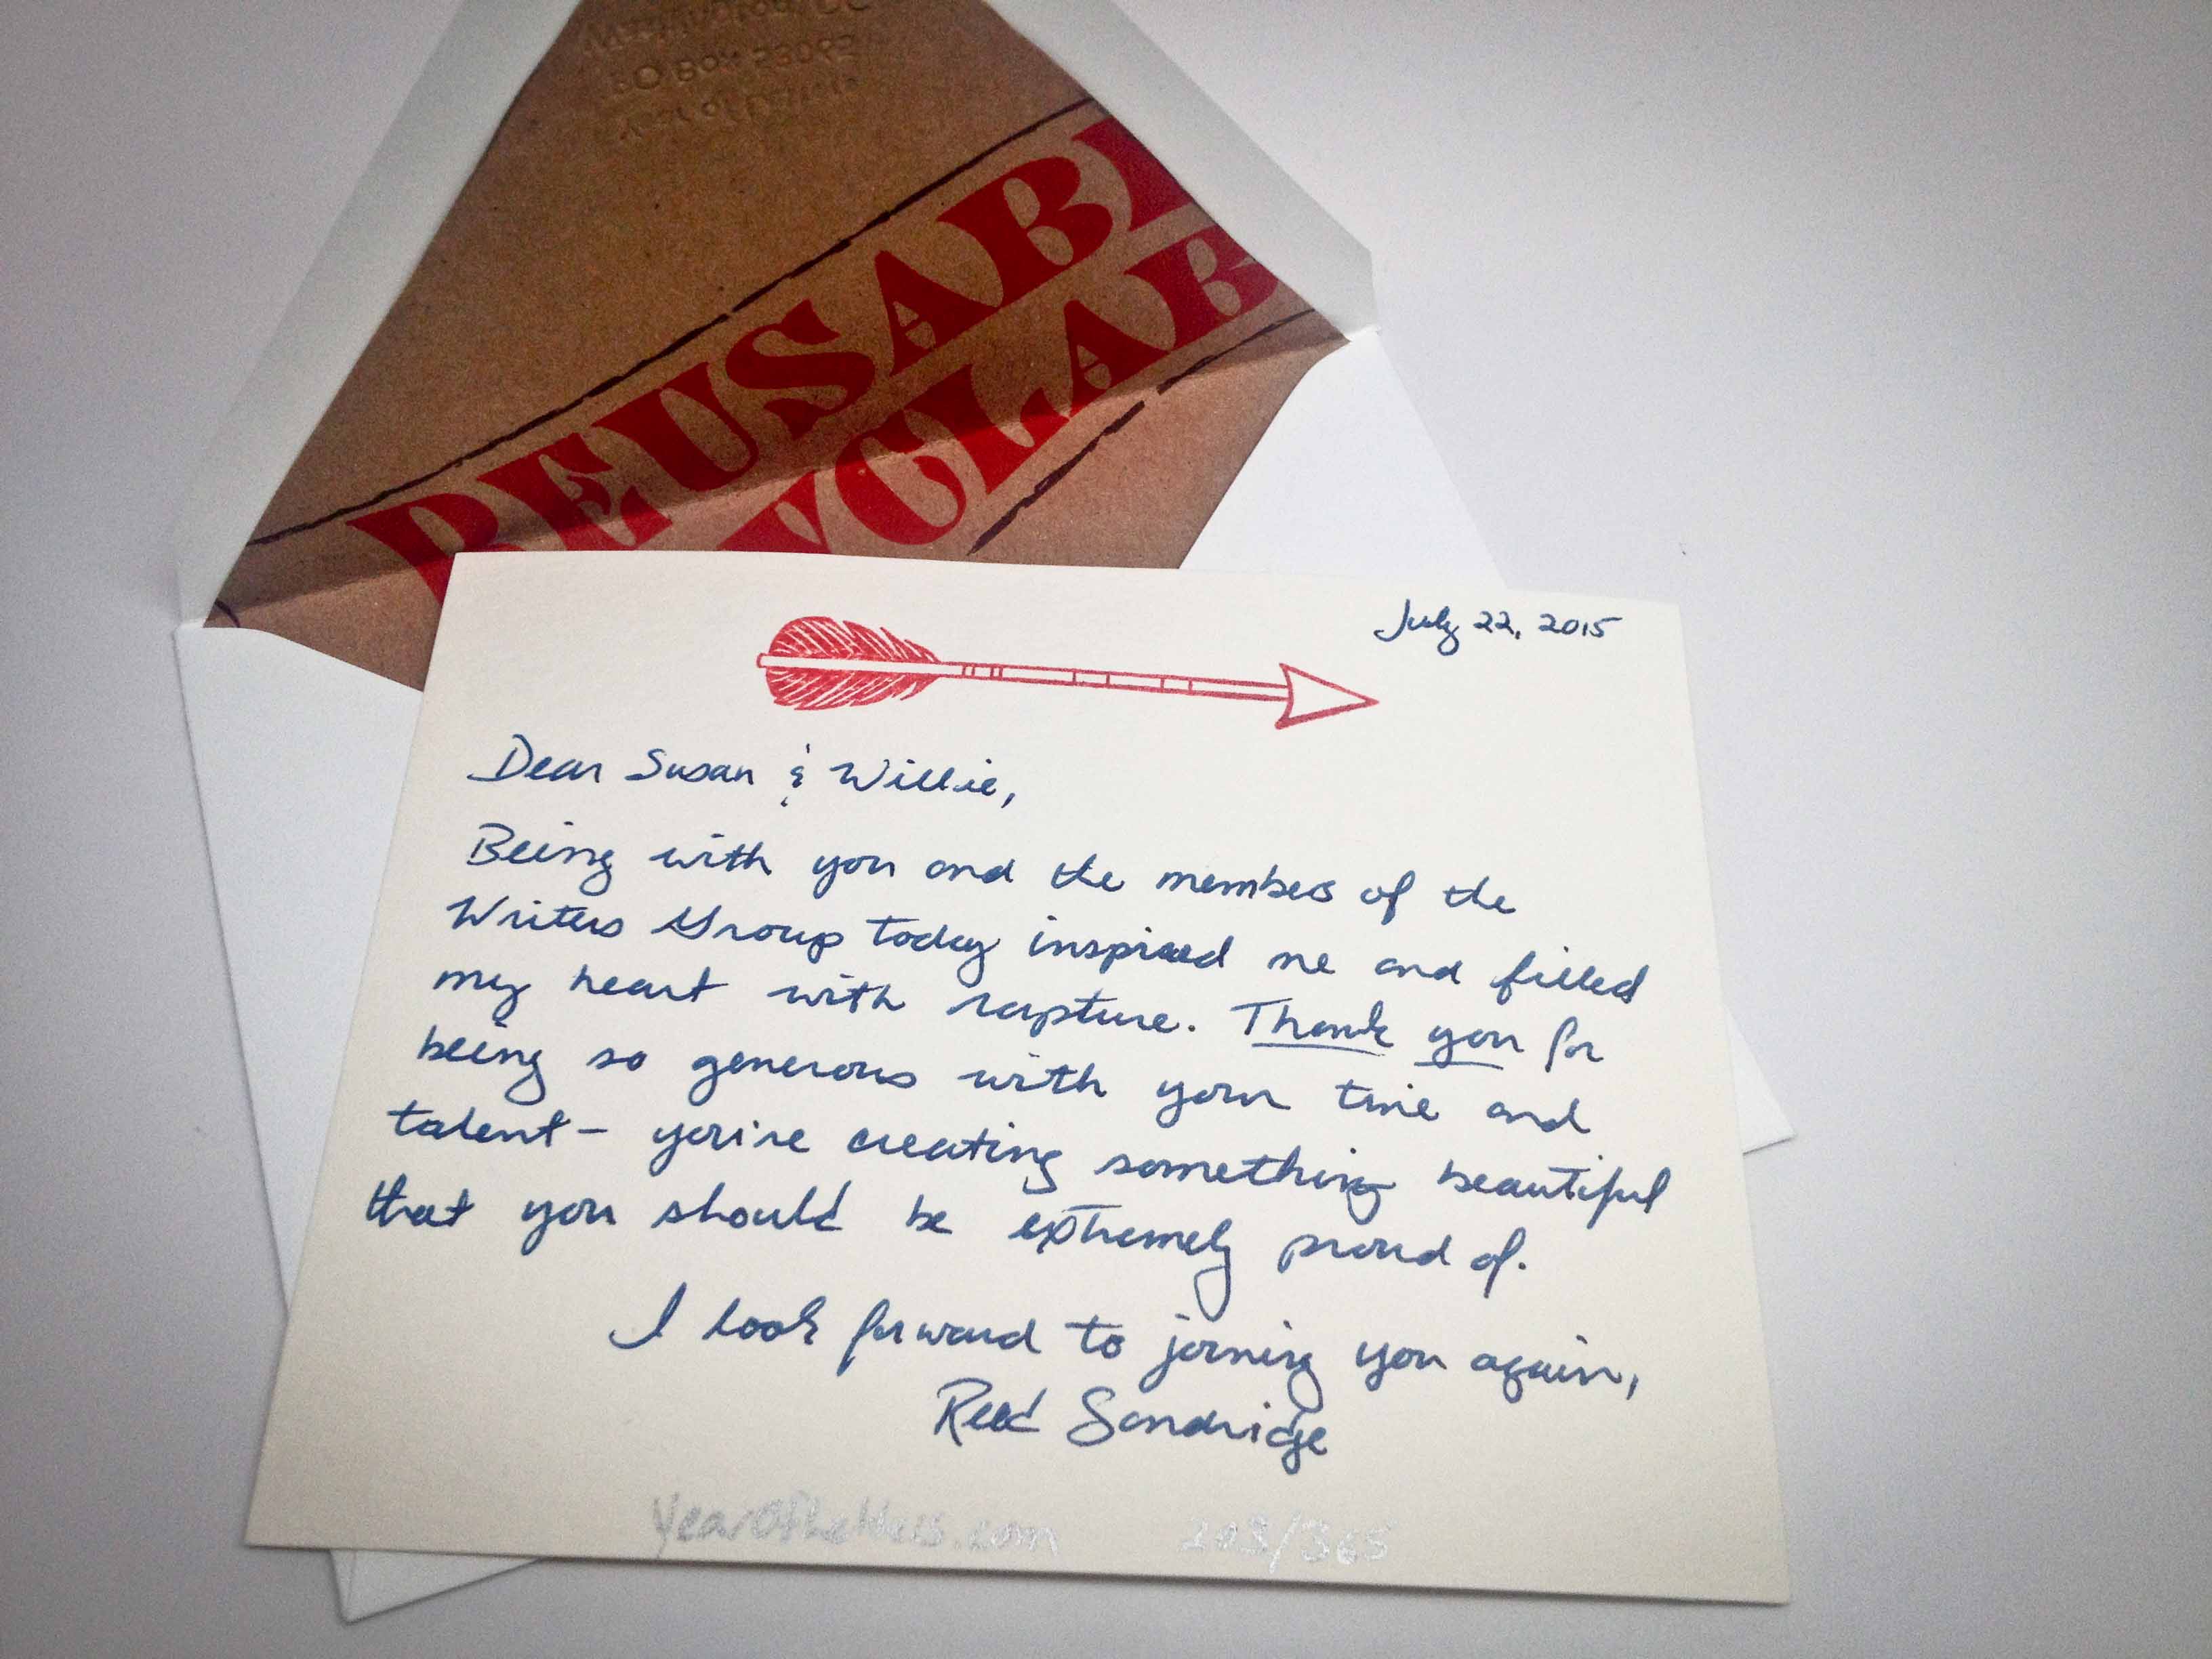 PO BOX 73092
REUSABL
YCLAB
July 22, 2015
Dear Susan & Willie,
Being with you and the members of the
Writers Group today inspired me and filled
my heart with rapture. Thank you for
being so generous with your time and
talent - you're creating something beautiful
that you should be extremely proud of.
I look forward to joining you again,
Reed Sandridge
203/365